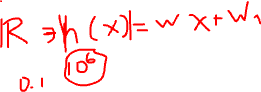 ℝ ∋ |h(x)| = w x + w₁
0.1 10⁶